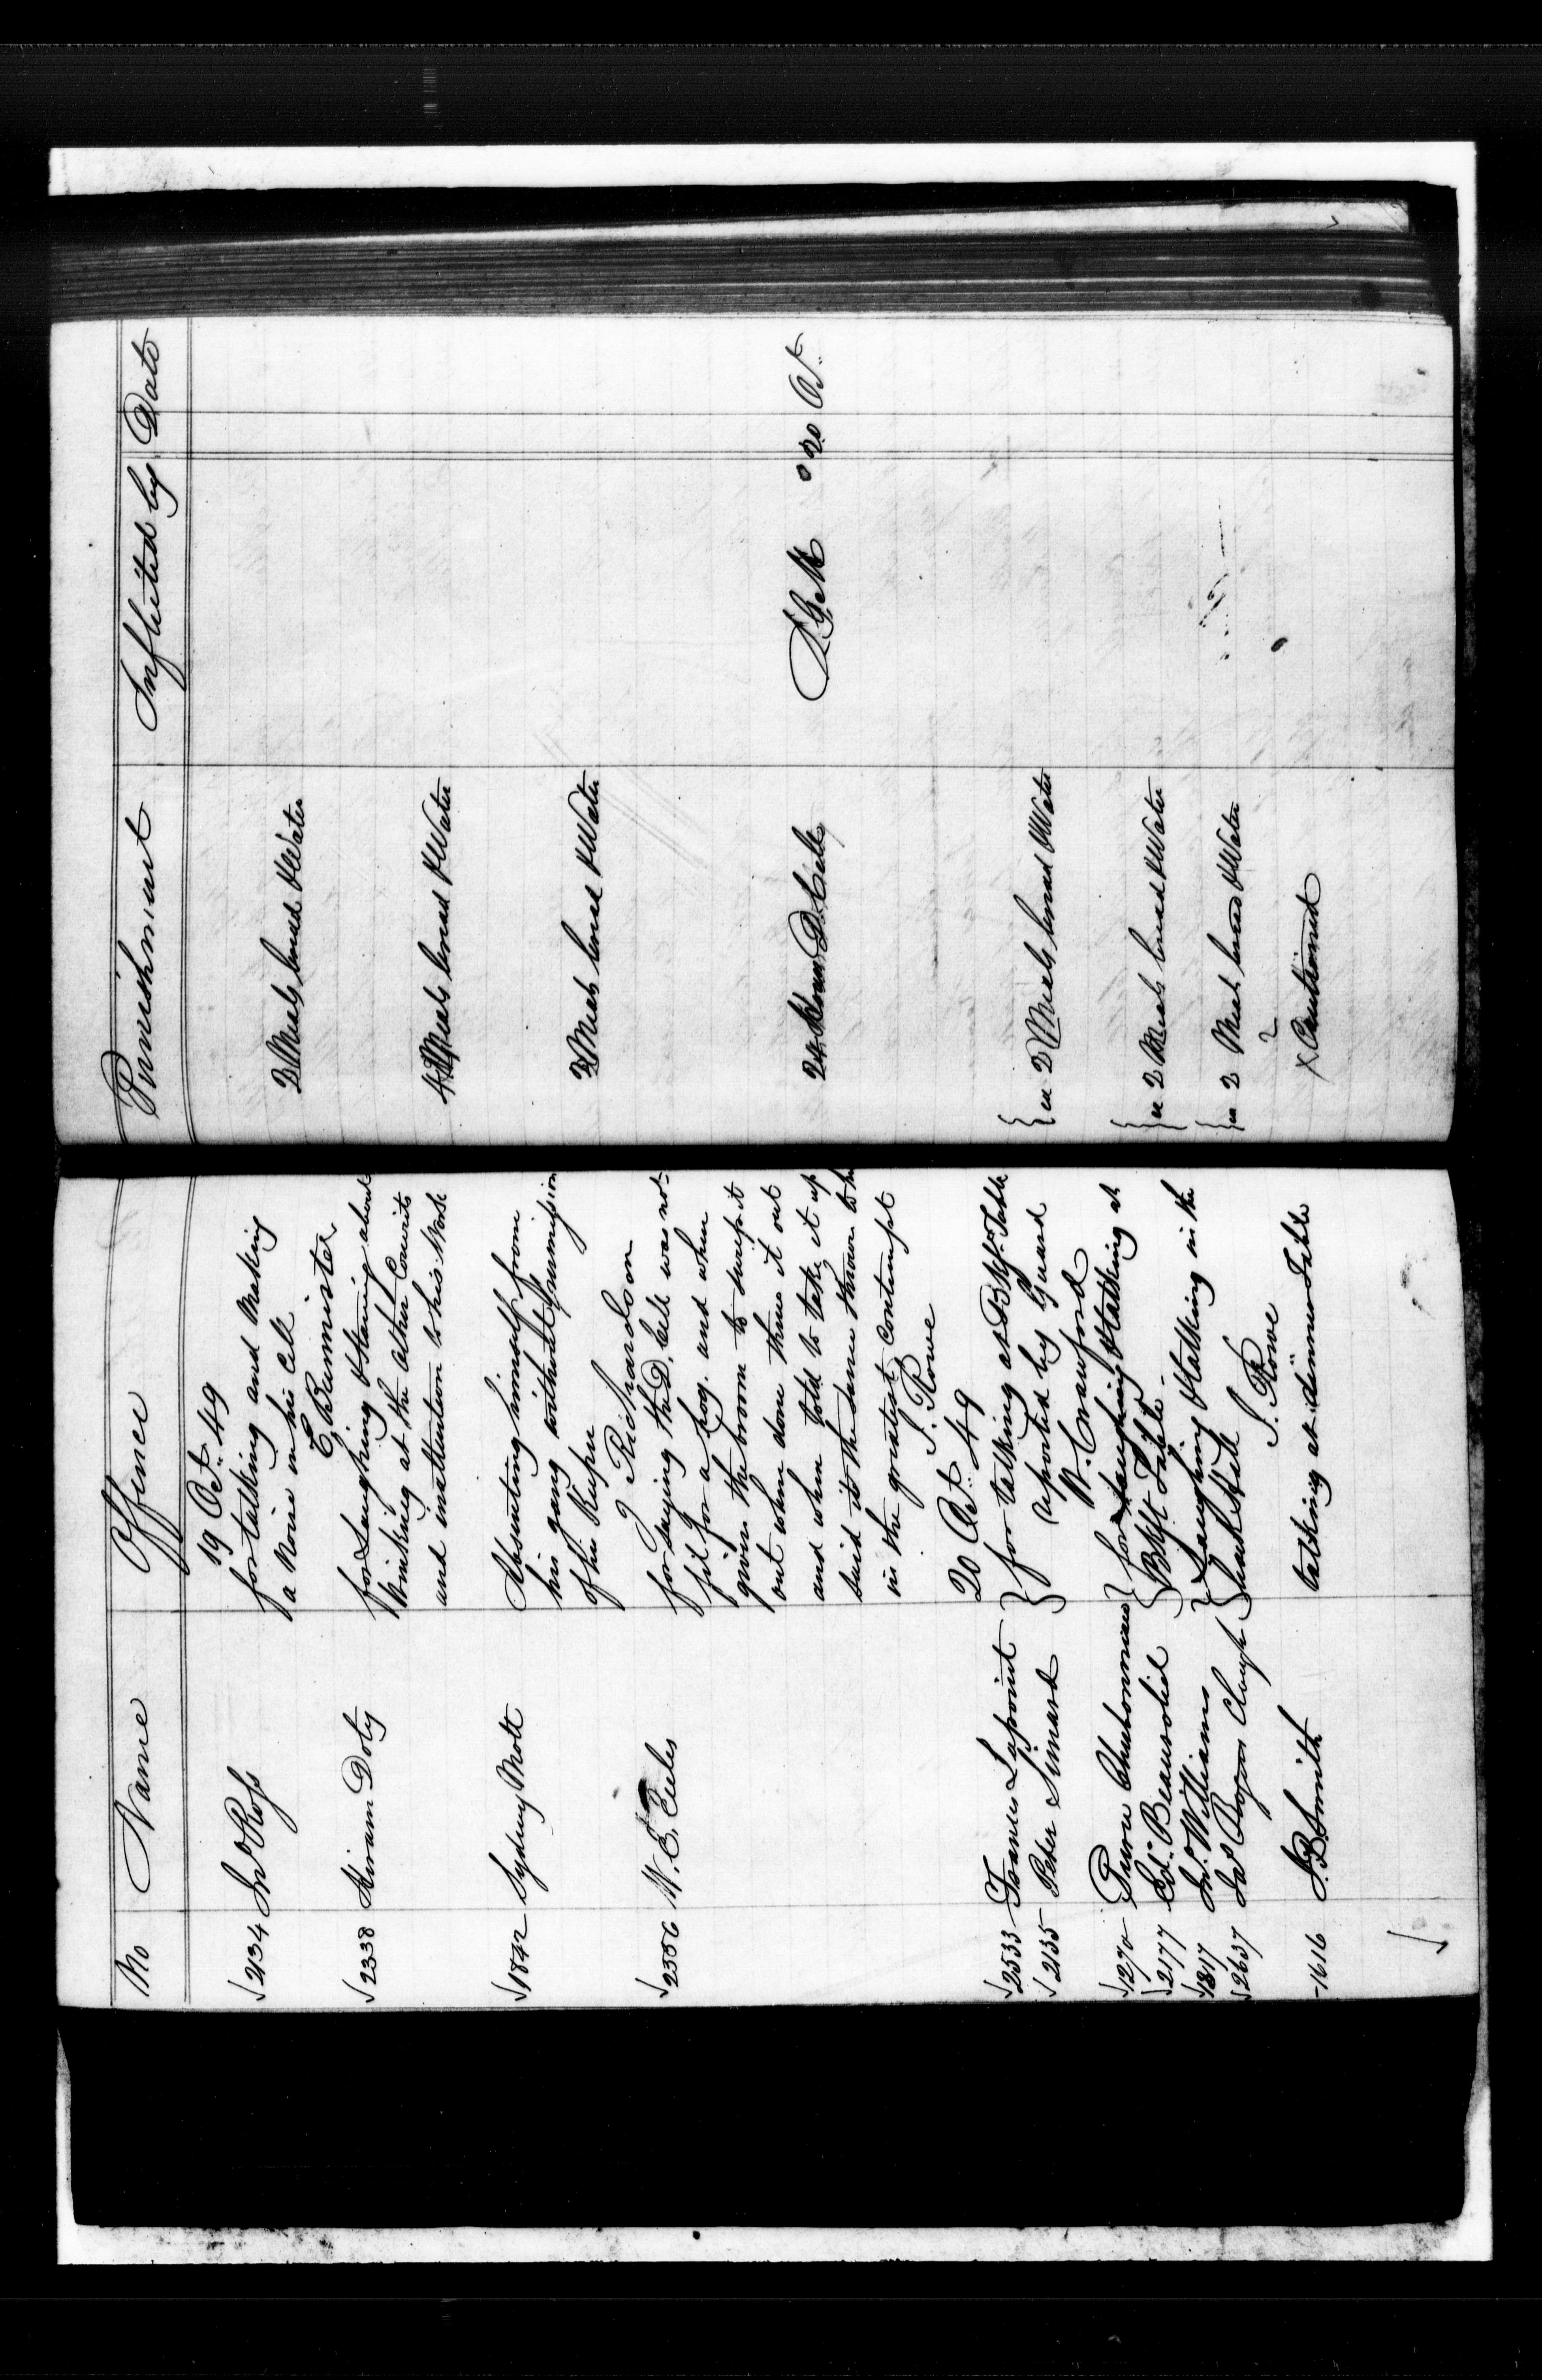 No Name Offence Punishment Inflicted by Date
19 Oct. 49
2134 Jno Ross for talking and Making
a Noise in his Cell 3 Meals bread & Water
E. Bannister
2338 Hiram Doty for Laughing & Staring about
Winking at the other Convicts
and inattention to his Work 4 Meals bread & Water
1842 Sydney Mott Absenting himself from
his gang without permission
of his Keeper 3 Meals bread & Water
J Richardson
2356 W. E. Eccles for Saying the D. Cell was not
fit for a hog. and when
given the broom to sweep it
out when done threw it out
and when told to take it up
said it the same thrown to
in the greatest contempt
24 Hours D. Cell 20 Oct.
S. Rowe
20 Oct. 49
2533 Francis Lapoint for talking at Bkft. Table
2135 Peter Simard reported by Guard ea 2 Meals bread & Water
W. Crawford
1270 for Laughing & talking at
2177 Ed. Beausoliel Bkft Table ea 2 Meals bread & Water
1817 Jno. Williams Laughing & talking in the
2637 Jas Rogers Wash Hall ea 2 Meals bread & Water
S. Rowe
1616 J. B. Smith talking at dinner Table X Cautioned